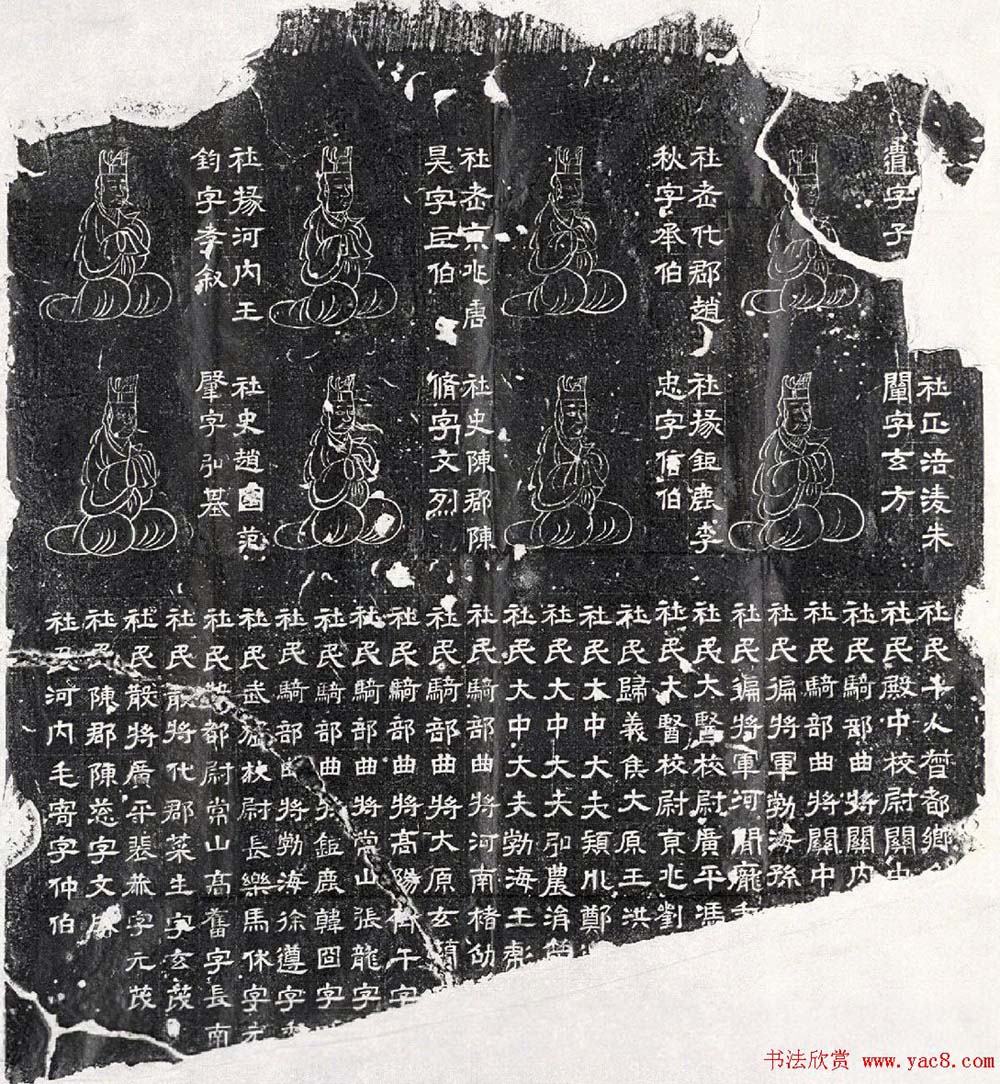 遺字子
社老代郡趙
秋字承伯
社老京兆唐
昊字巨伯
社掾河內王
鈞字孝叙
社正涪淩朱
闡字玄方
社掾鉅鹿李
忠字信伯
社史陳郡陳
脩字文烈
社史趙國范
肇字弘基
社民大人督都鄉
社民殿中校尉關中
社民騎部曲將關內
社民騎部曲將關中
社民偏將軍勃海孫
社民偏將軍河間龐
社民大醫校尉廣平馮
社民大醫校尉京兆劉
社民歸義侯大原王洪
社民大中大夫潁川鄭
社民大中大夫弘農涓
社民大中大夫勃海王彪
社民騎部曲將河南楮劭
社民騎部曲將大原玄蘭
社民騎部曲將高陽午字
社民騎部曲將常山張龍字
社民騎部曲將鉅鹿韓囧字
社民騎部曲將勃海徐遵字
社民武猛校尉長樂馬休字元
社民散都尉常山高舊字長南
社民散將代郡萊生字玄茂
社民散將廣平裴茀字元茂
社民陳郡陳慈字文
社民河內毛寄字仲伯
书法欣赏 www.yac8.com